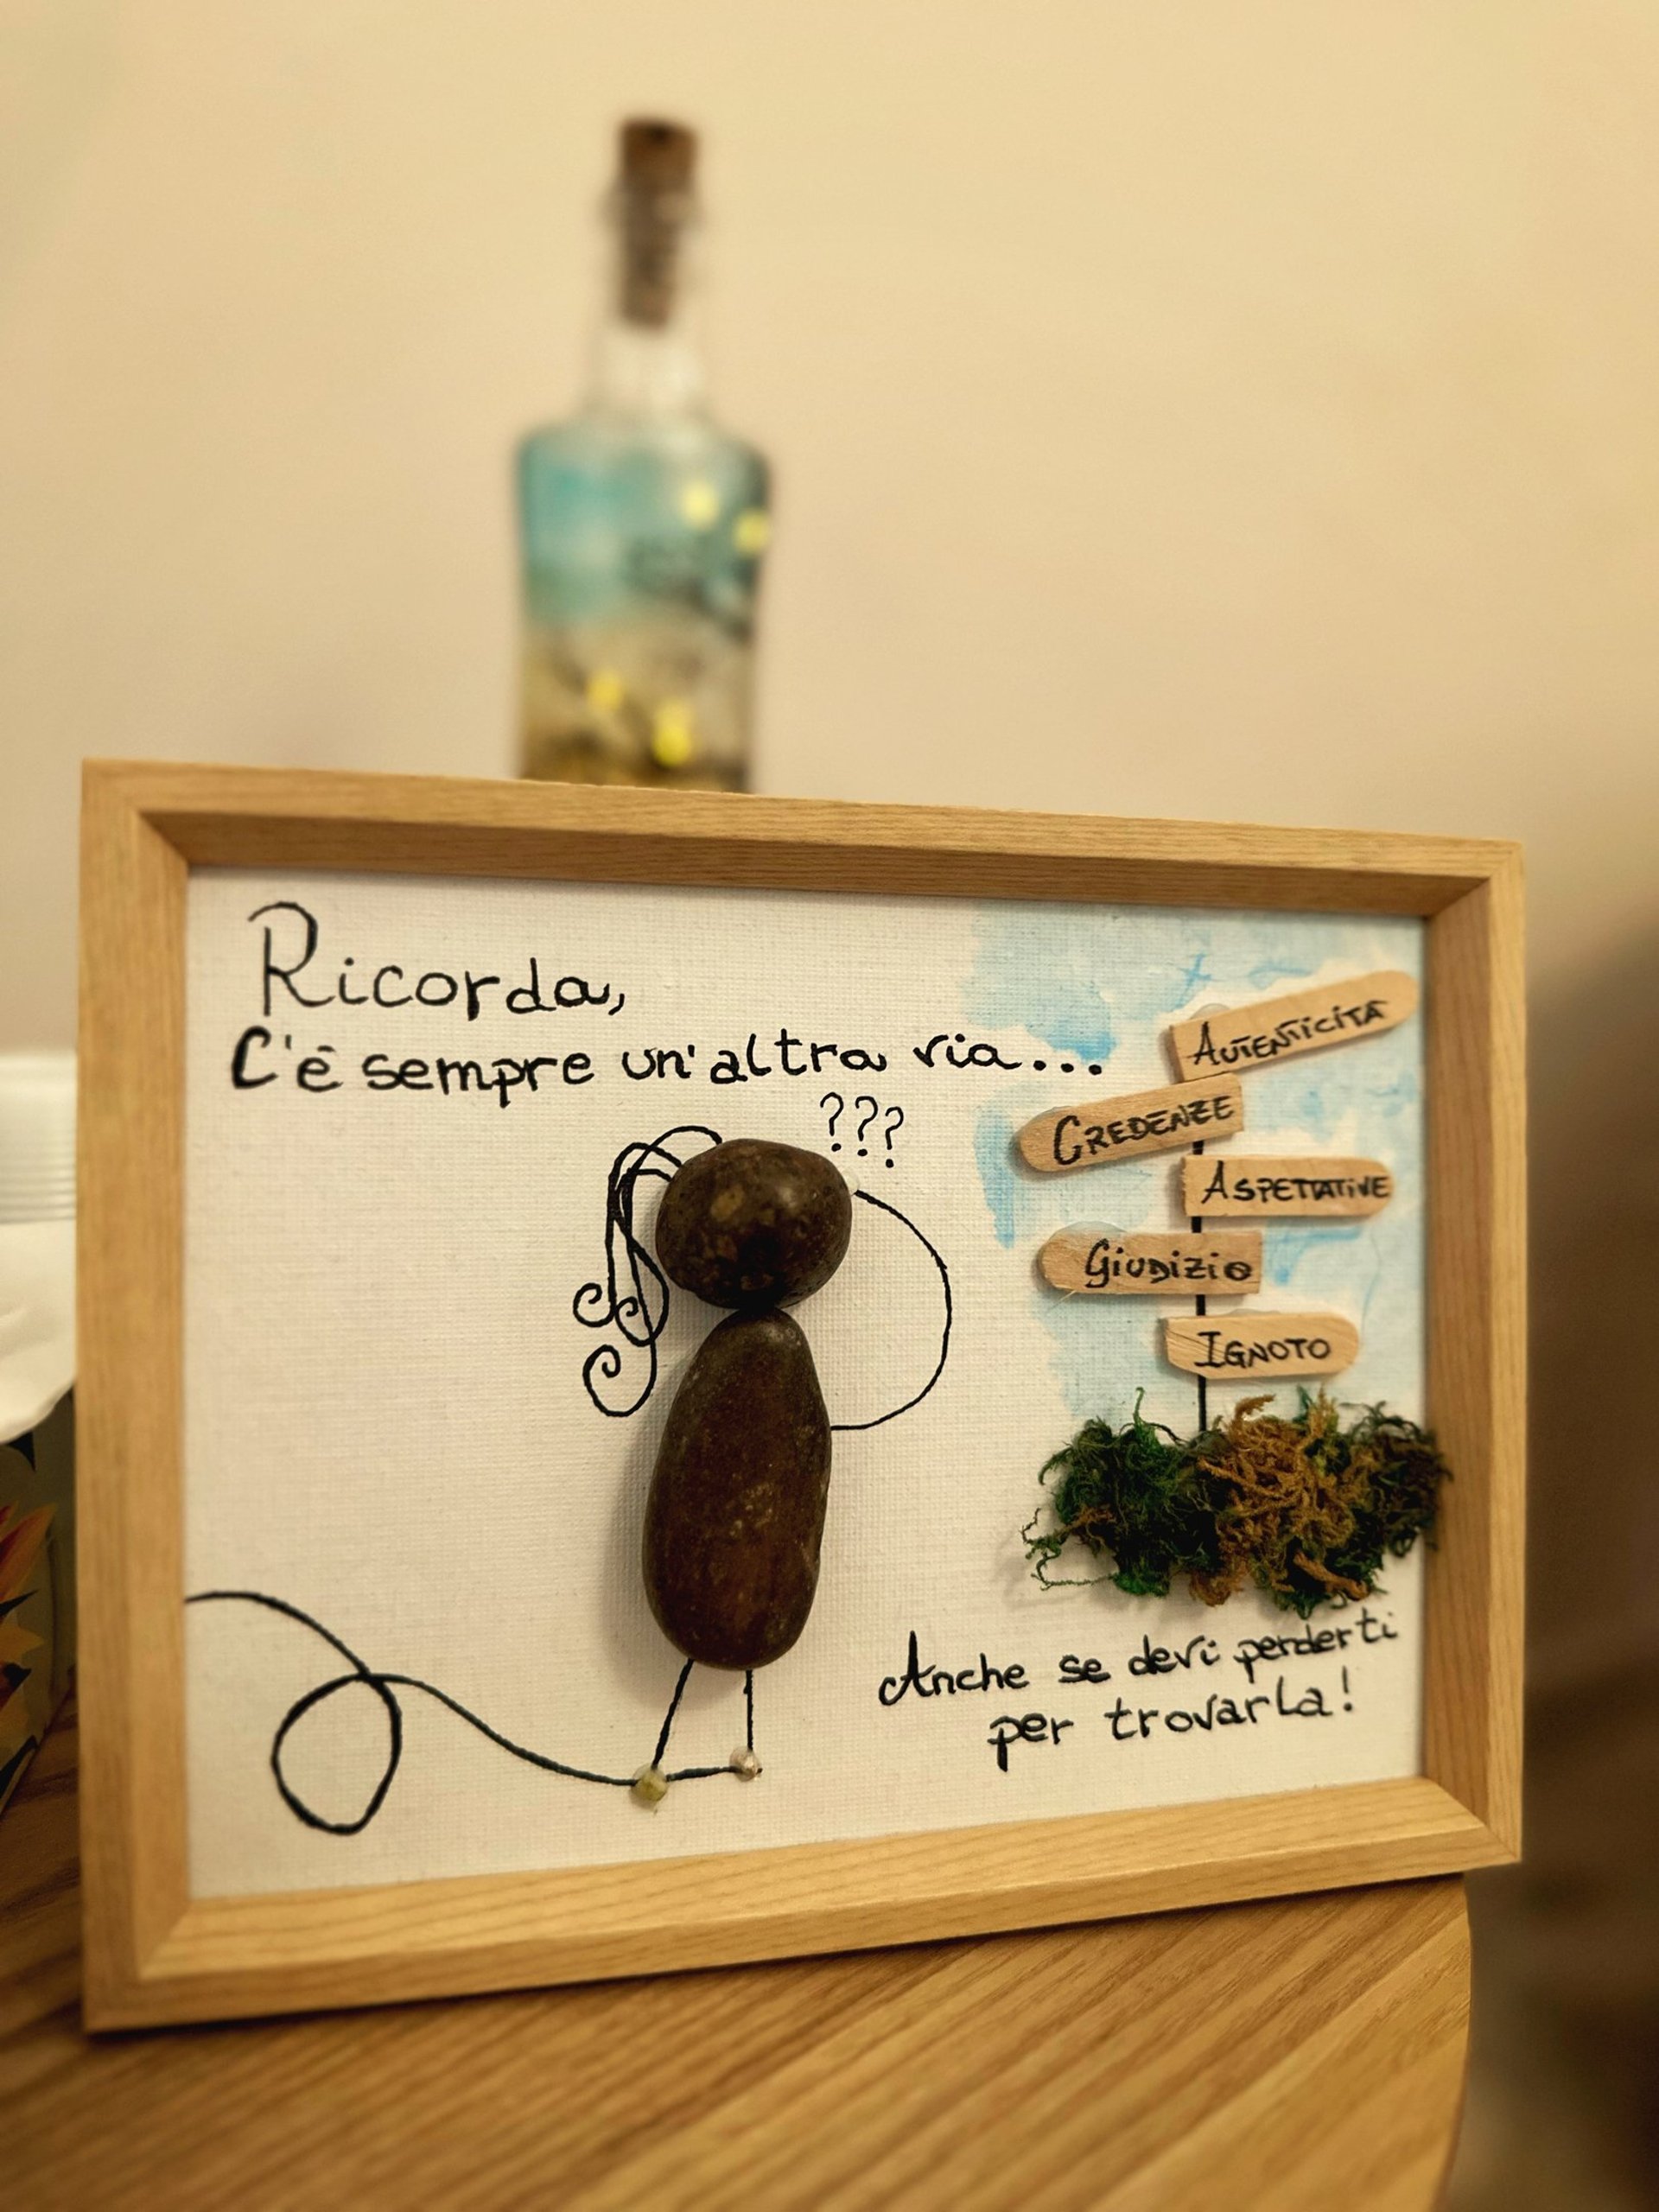 Ricorda,
C'è sempre un'altra via...
???
AUTENTICITÀ
CREDENZE
ASPETTATIVE
GIUDIZIO
IGNOTO
Anche se devi perderti
per trovarla!